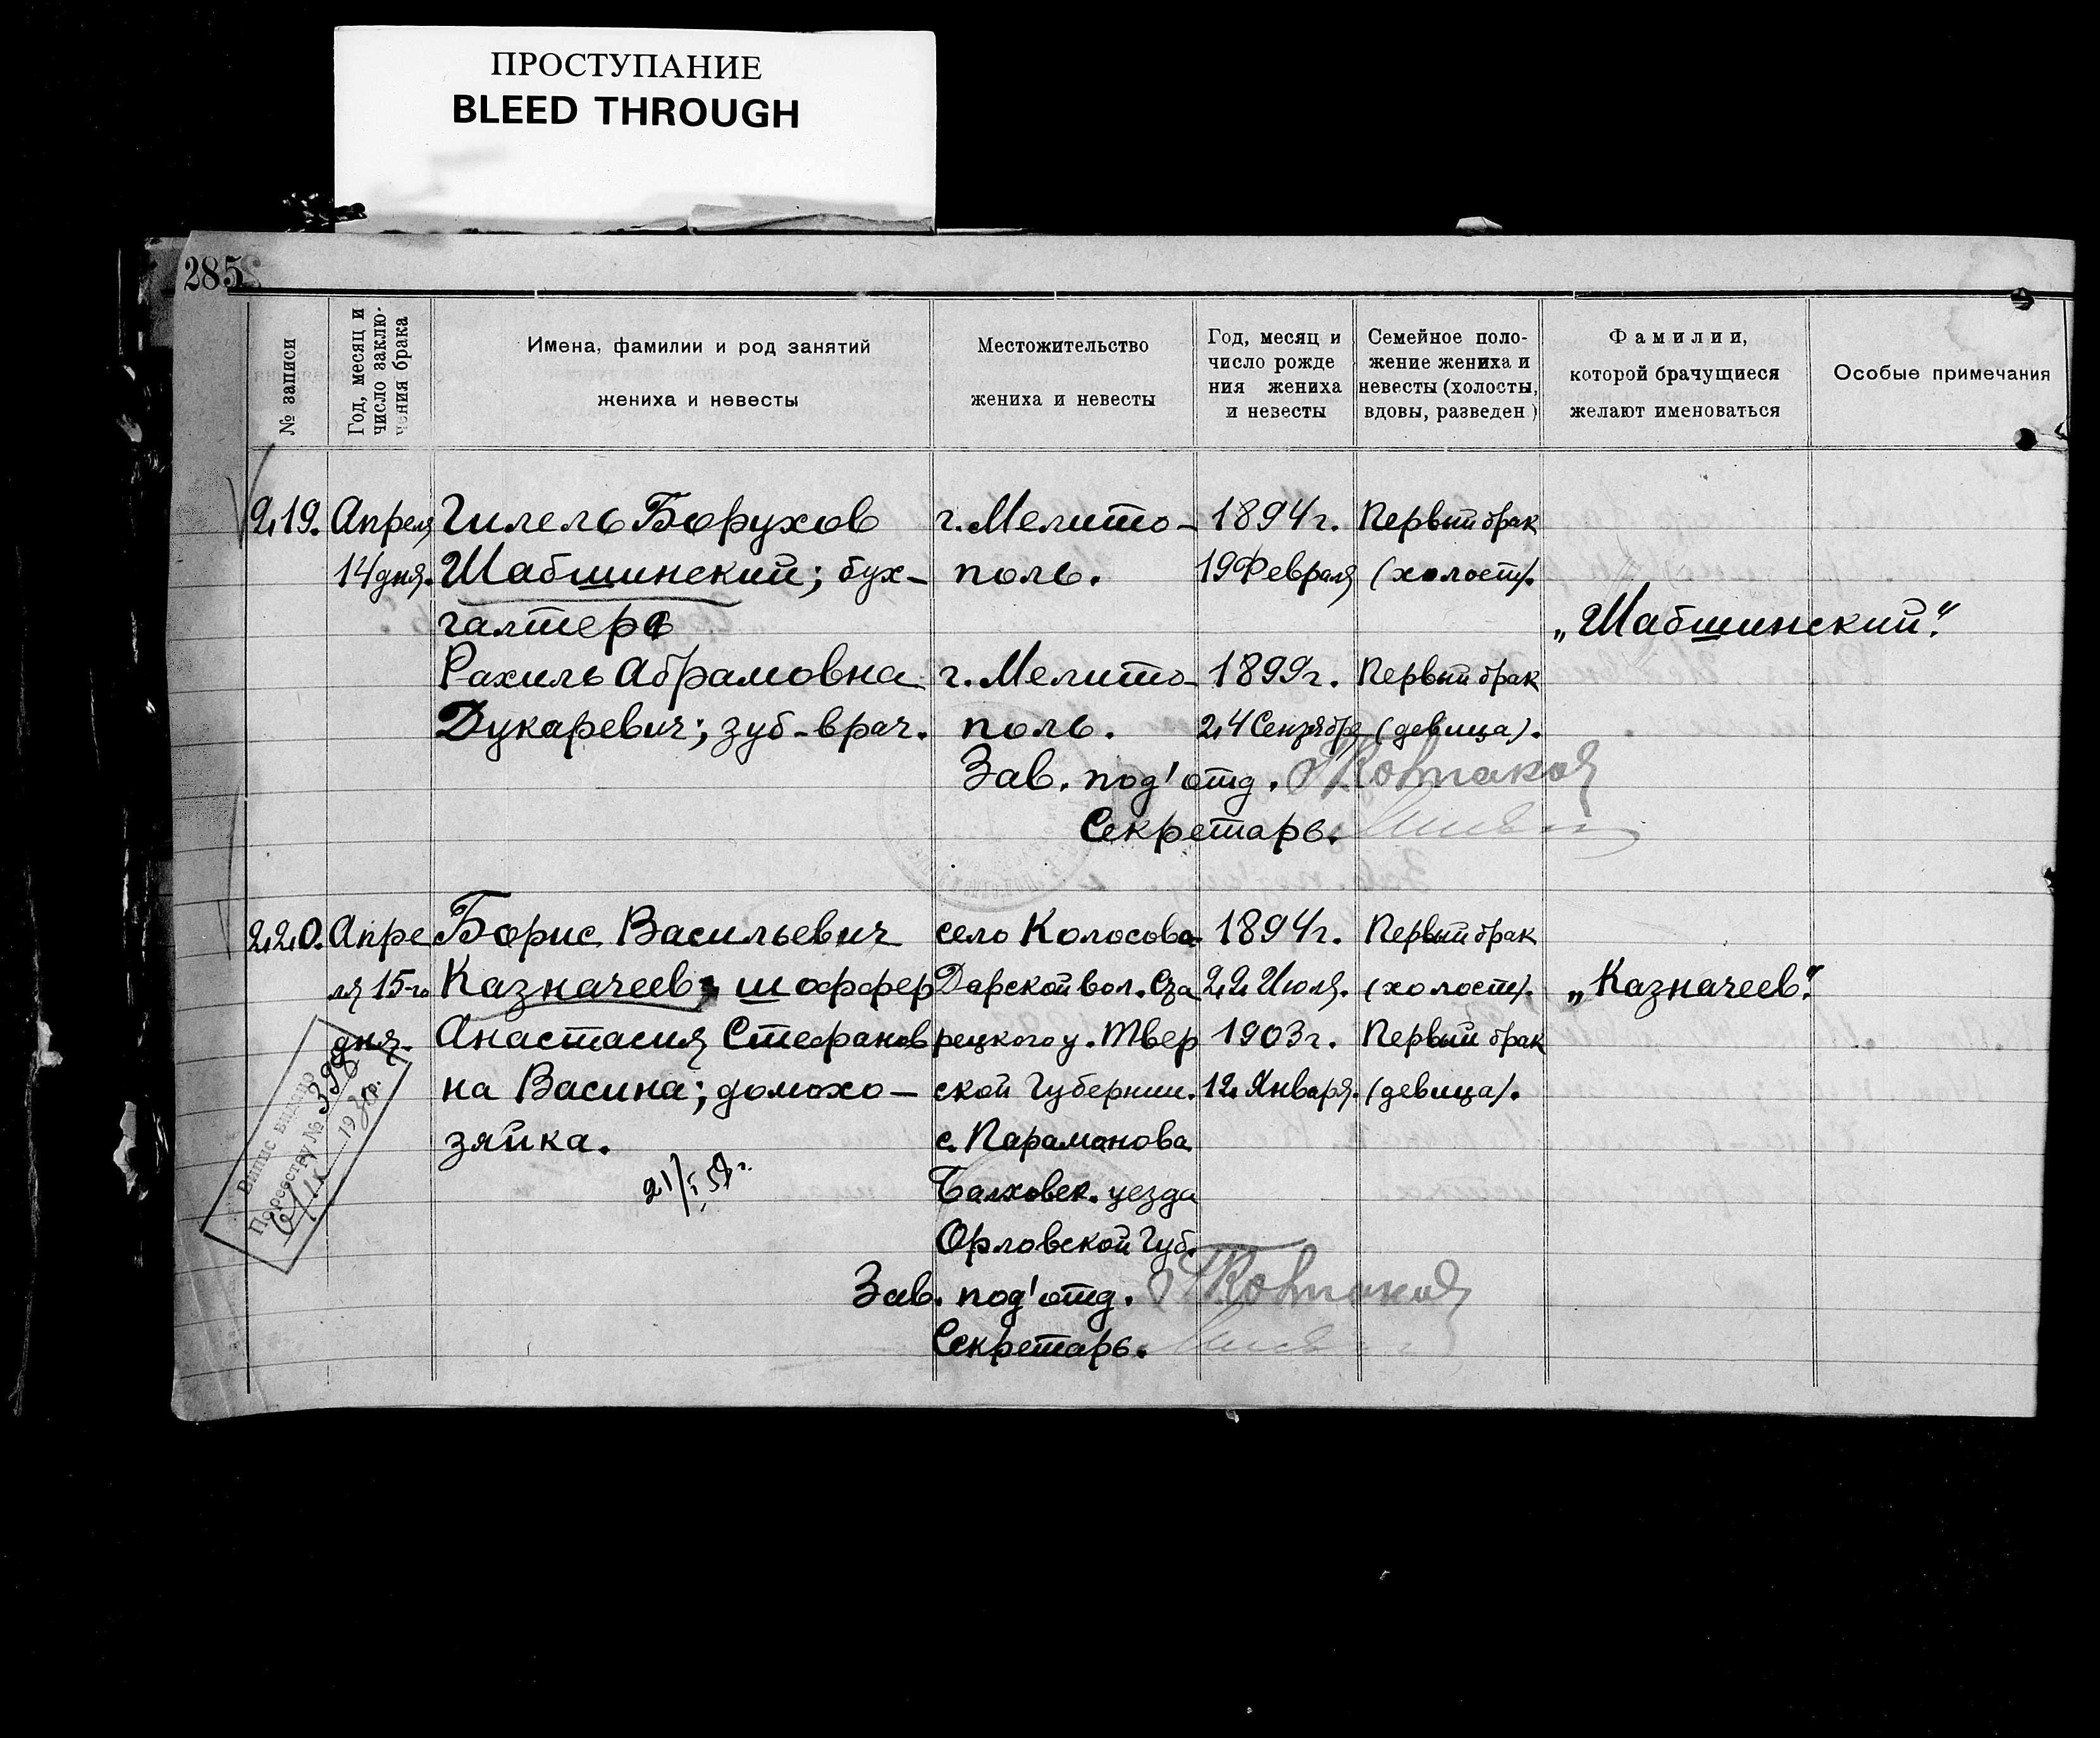 ПРОСТУПАНИЕ
BLEED THROUGH
285
№ записи
Год, месяц и
число заклю-
чения брака
Имена, фамилии и род занятий
жениха и невесты
Местожительство
жениха и невесты
Год, месяц и
число рожде
ния жениха
и невесты
Семейное поло-
жение жениха и
невесты (холосты,
вдовы, разведен)
Фамилии,
которой брачущиеся
желают именоваться
Особые примечания
219. Апреля Гилель Борухов г. Мелито- 1894 г. Первый брак
14 дня. Шабшинский; бух- поль. 19 Февраля (холост).
галтер
„Шабшинский."
Рахиль Абрамовна г. Мелито- 1899 г. Первый брак
Дукаревич; зуб-врач. поль. 24 Сентября (девица).
Зав. под'отд.
Секретарь.
220. Апре Борис Васильевич село Колосова 1894 г. Первый брак
ля 15-го Казначеев; шоффер Дарской вол. 22 Июля. (холост). „Казначеев."
дня. Анастасия Стефанов рецкого у. Твер 1903 г. Первый брак
на Васина; домохо- ской Губернии. 12 Января. (девица).
зяйка. с. Параманова
21/I
Балховск. уезда
Орловской Губ.
Зав. под'отд.
Секретарь.
Випис видано
По реестру № 398
193